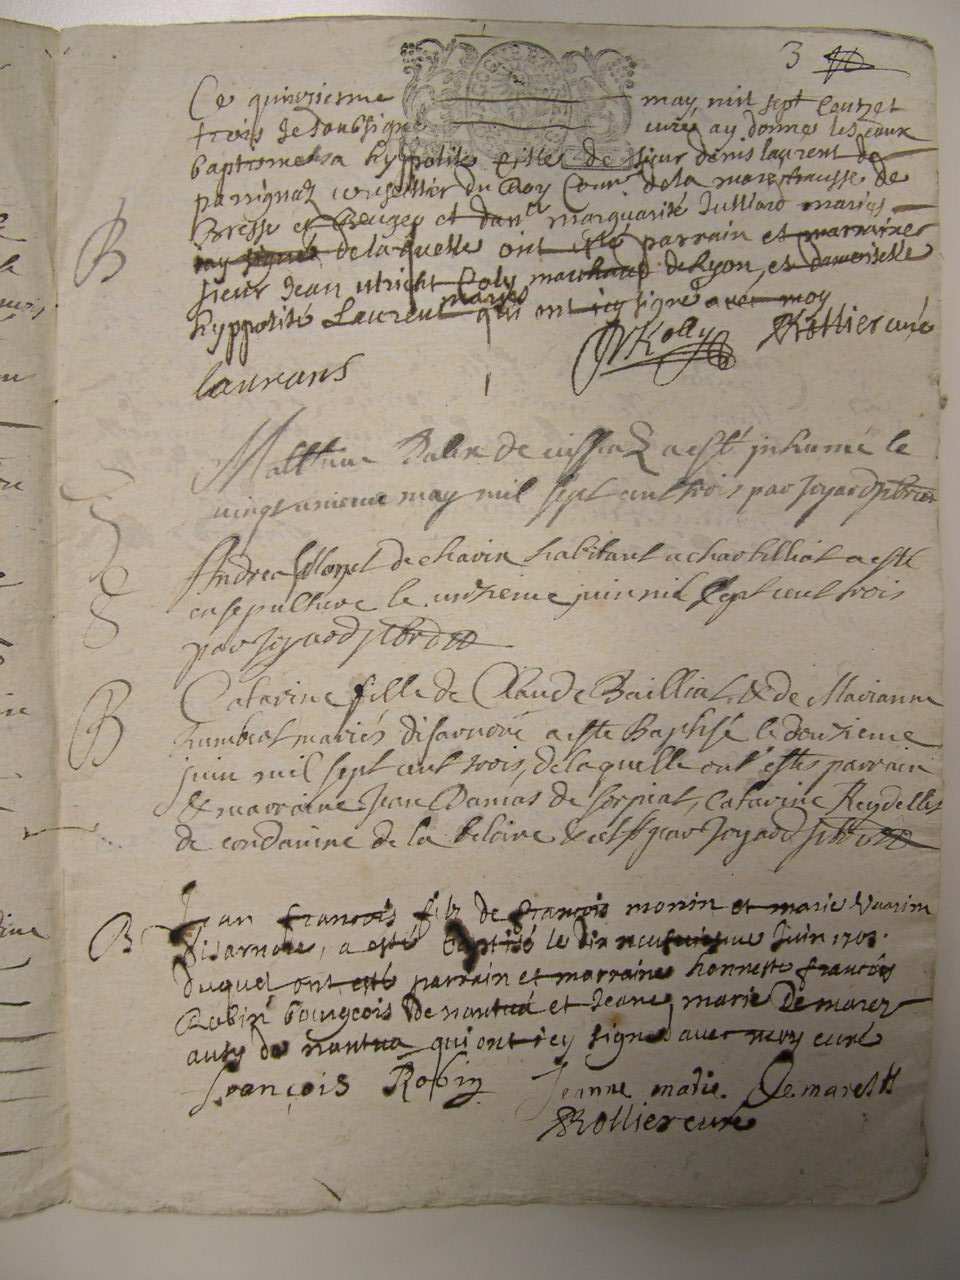 3
Ce quinzieme may mil sept centz et
trois Je soubsigné curé ay donné les eaux
baptismales a hyppolite fille de sieur denis laurent de
parrignaz conseillier du Roy Com.re de la mareschausse de
Bresse et Beugey et dam.lle marguarite Julliard mariés
de laquelle ont esté parrain et marraine
sieur Jean ulricht Coly marchand de Lyon, et damoiselle
hyppolite Laurent qui ont icy signé avec moy
JVKolly Rollier curé
laurans
B
Matthieu de cussiaz a esté inhumé le
vingt unieme may mil sept cent trois par Joyard
S
Andrea de chavin habitant a charbilliat a esté
ensepulturé le unzieme juin mil sept cent trois
par Joyard
B
Catarine fille de Claude Bailliat & de Marianne
humbert mariés disarnore a esté Baptisé le douzieme
juin mil sept cent trois, de laquelle ont estés parrain
& marraine Jean Damas de sorpiat, Catarine Reydellet
de condamine de la beloire par Joyard
B
Jean francois filz de françois monin et marie
disarnore, a esté baptisé le dix neufvieme Juin 1703.
duquel ont esté parrain et marraine honneste françois
Robin bourgeois de nantua et Jeane marie De marez
aussy de nantua qui ont icy signé avec moy curé
françois Robin Jeanne marie Demarest
Rollier curé